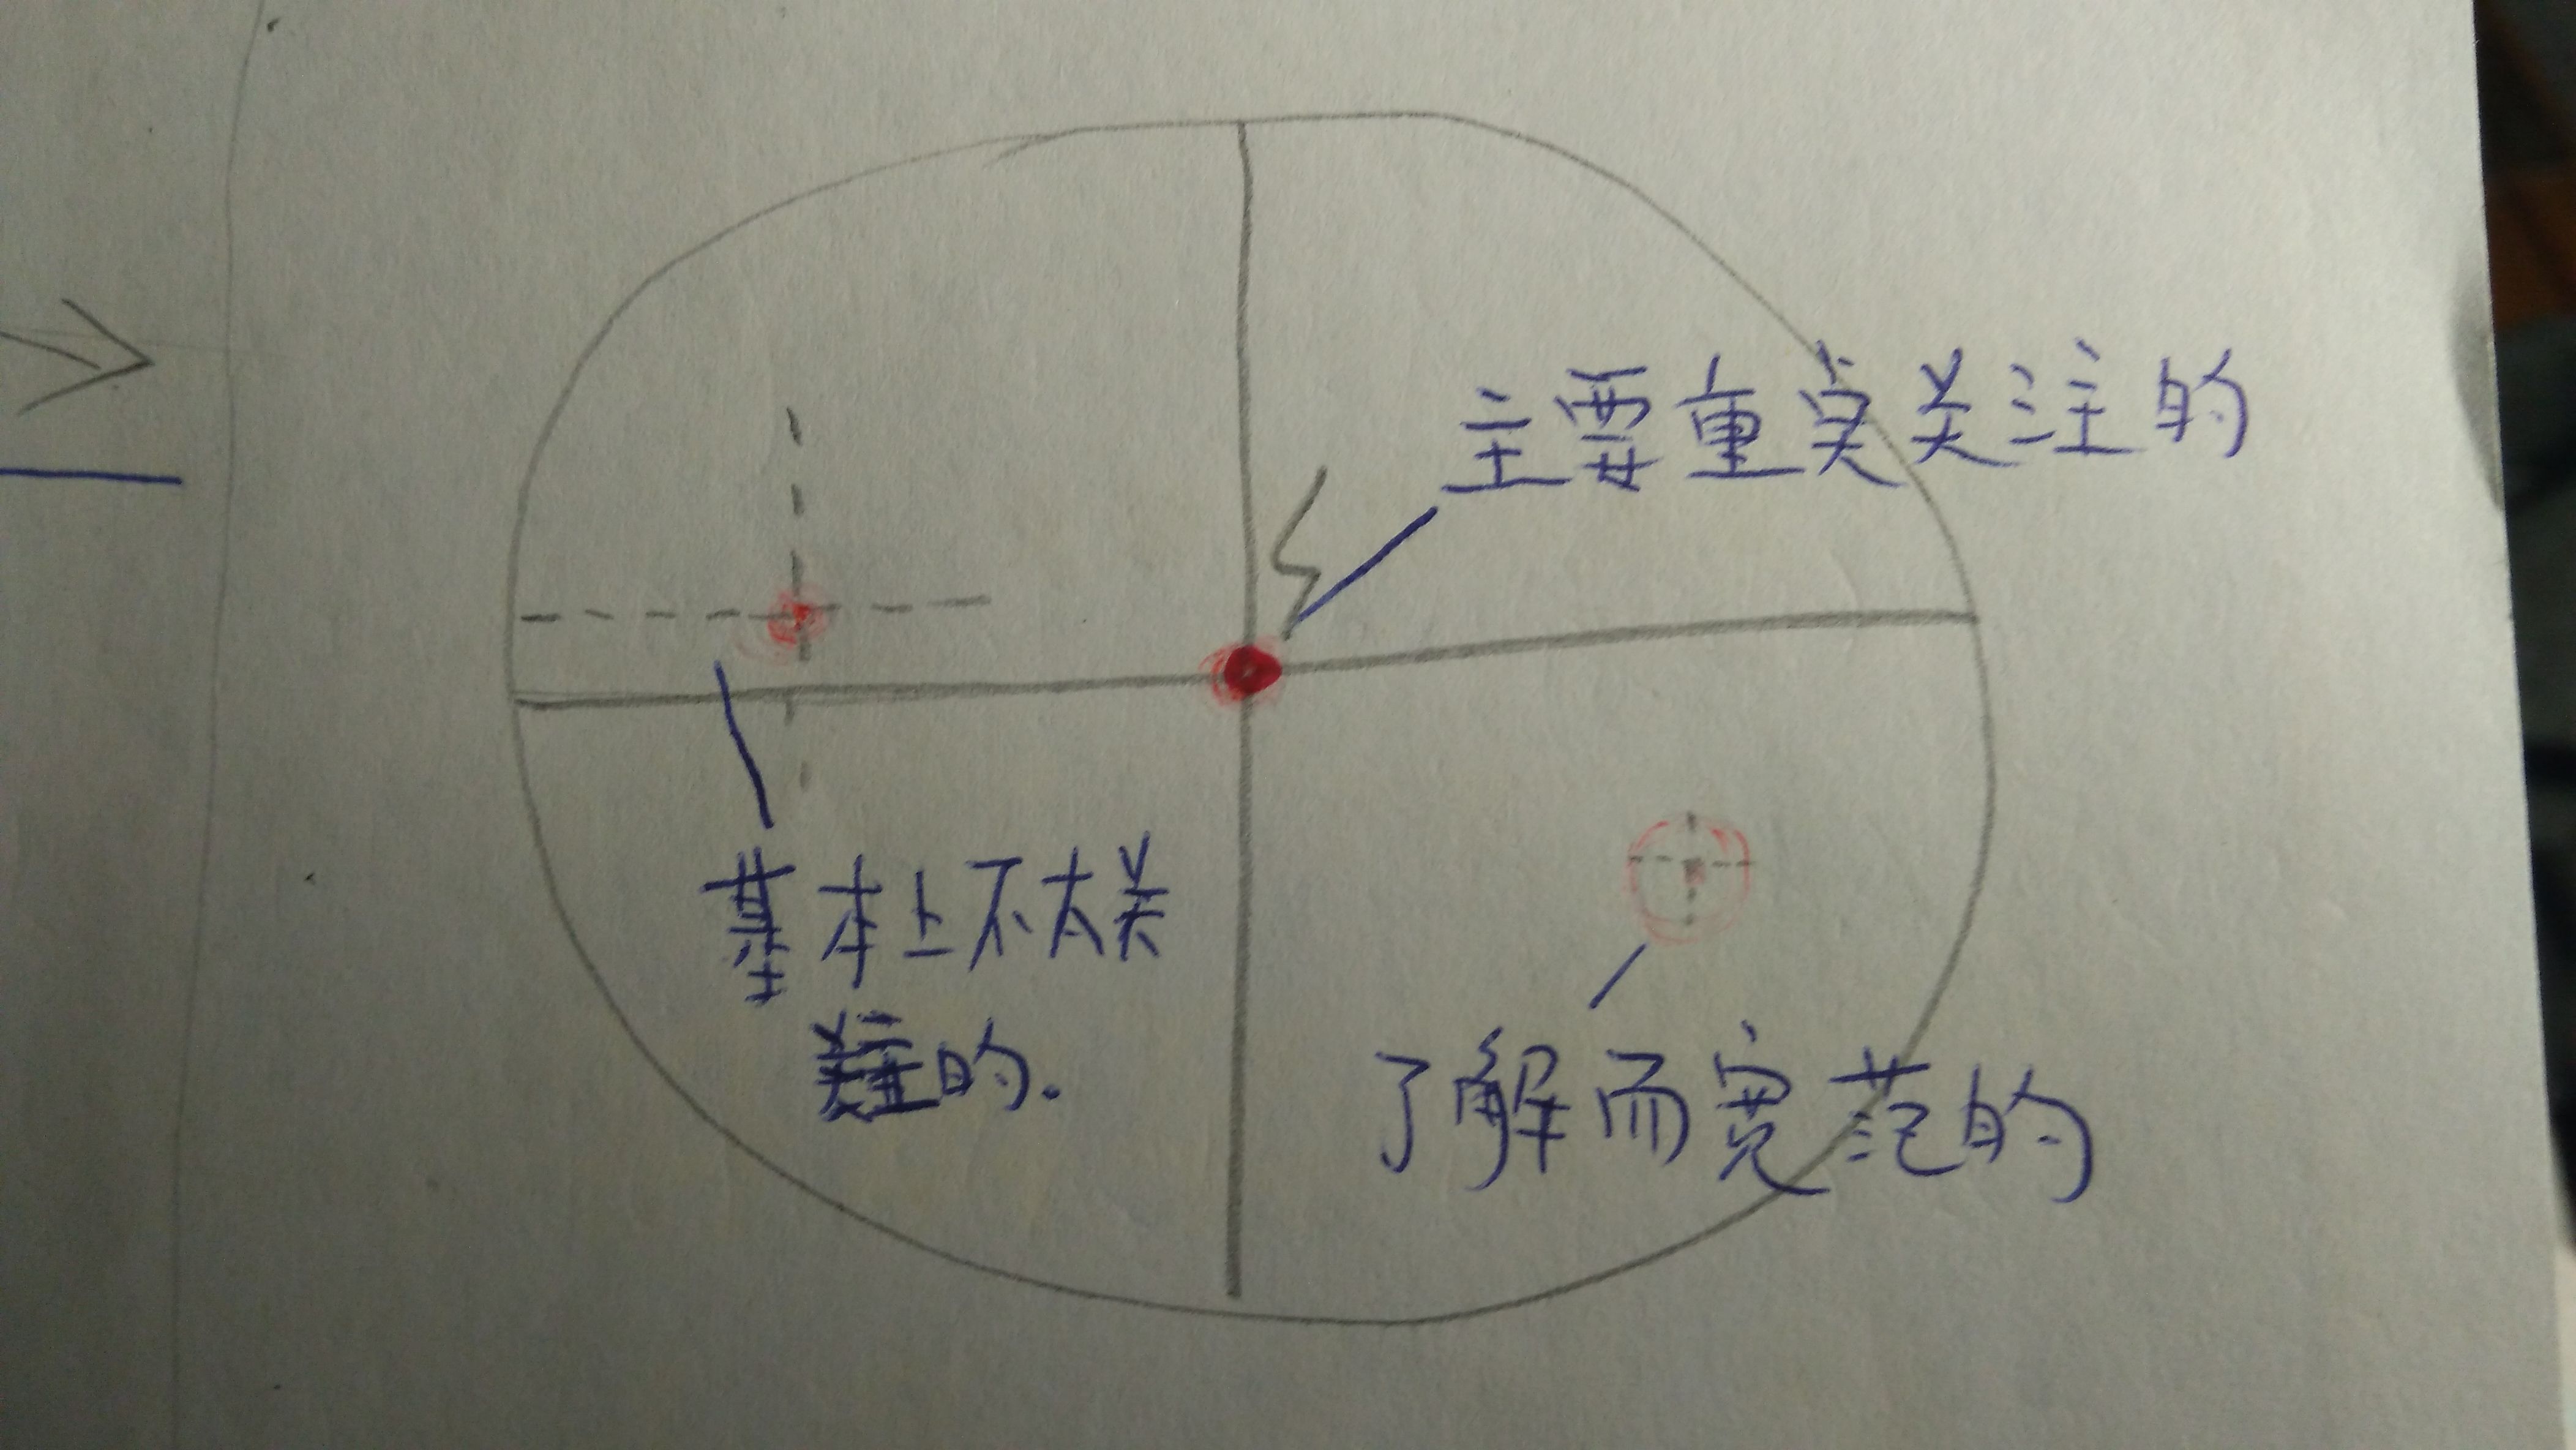 主要重点关注的
基本上不太关
难的.
了解而宽范的